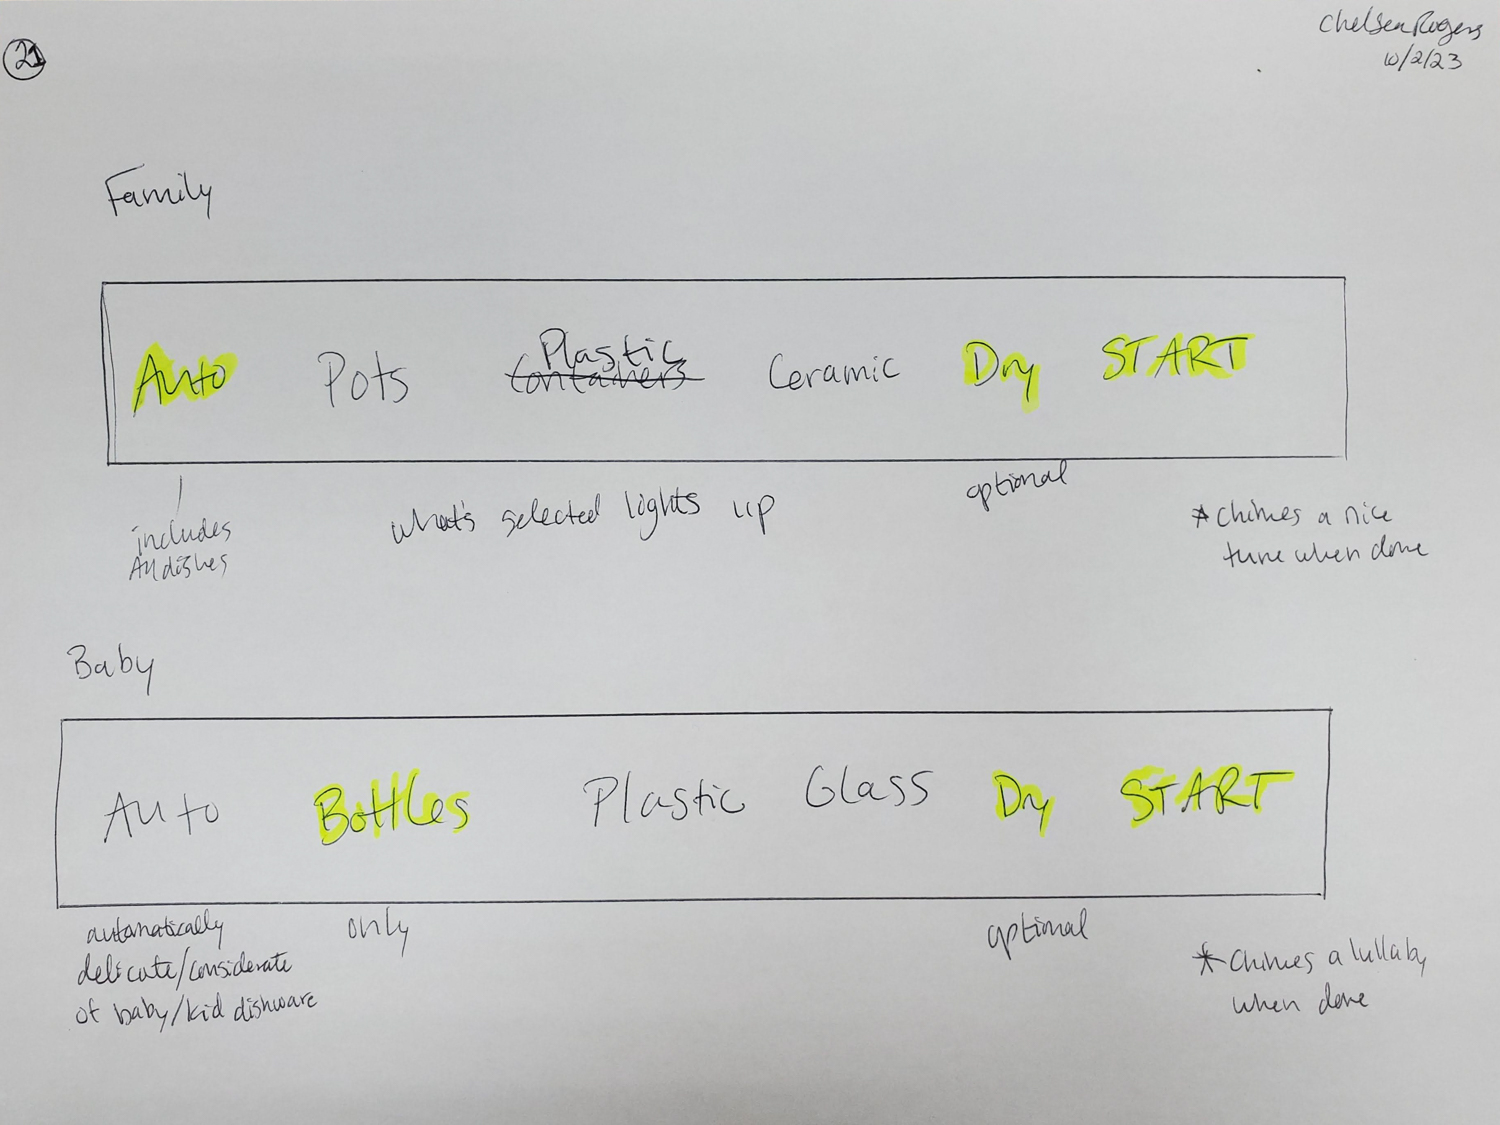 21
Chelsea Rogers
10/2/23
Family
Plastic
Auto Pots Containers Ceramic Dry START
includes
All dishes
what's selected lights up
optional
* Chimes a nice
tune when done
Baby
Auto Bottles Plastic Glass Dry START
automatically
delicate/considerate
of baby/kid dishware
only
optional
* Chimes a lullaby
when done